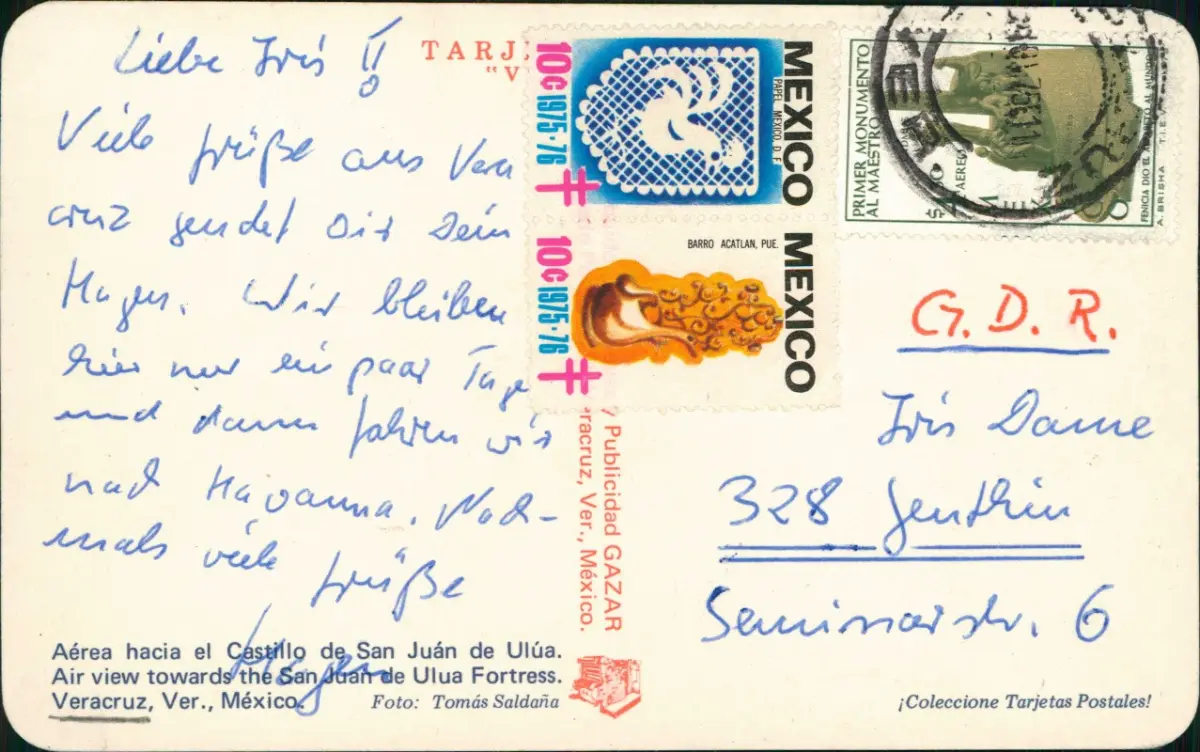 Liebe Iris !!
Viele Grüße aus Vera
cruz sendet Dir Dein
Hagen. Wir bleiben
hier nur ein paar Tage
und dann fahren wir
nach Havanna. Noch-
mals viele Grüße
Hagen
TARJE
"V
Aérea hacia el Castillo de San Juán de Ulúa.
Air view towards the San Juan de Ulua Fortress.
Veracruz, Ver., México.
Foto: Tomás Saldaña
y Publicidad GAZAR
eracruz, Ver., México.
MEXICO
PAPEL MEXICO D. F.
10c 1975-76
MEXICO
BARRO ACATLAN, PUE.
10c 1975-76
PRIMER MONUMENTO
AL MAESTRO
AEREO
FENICIA DIO EL ALFABETO AL MUNDO
A. BRISHA T.I.E.V.
G.D.R.
Iris Damme
328 Genthin
Seminarstr. 6
¡Coleccione Tarjetas Postales!